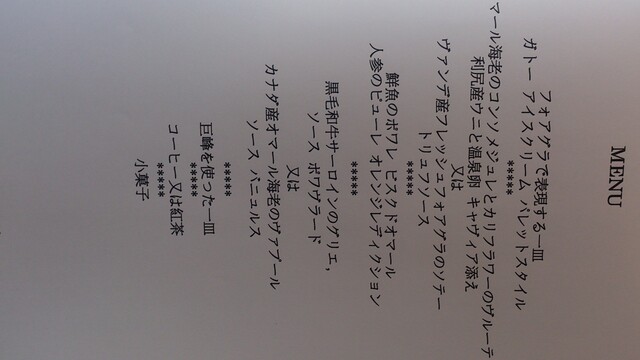 MENU
フォアグラで表現する一皿
ガトー アイスクリーム パレットスタイル
*****
オマール海老のコンソメジュレとカリフラワーのヴルーテ
利尻産ウニと温泉卵 キャヴィア添え
又は
ヴァンデ産フレッシュフォアグラのソテー
トリュフソース
*****
鮮魚のポワレ ビスクドオマール
人参のピューレ オレンジレディクション
*****
黒毛和牛サーロインのグリエ,
ソース ポワヴラード
又は
カナダ産オマール海老のヴァプール
ソース バニュルス
*****
巨峰を使った一皿
*****
コーヒー又は紅茶
*****
小菓子